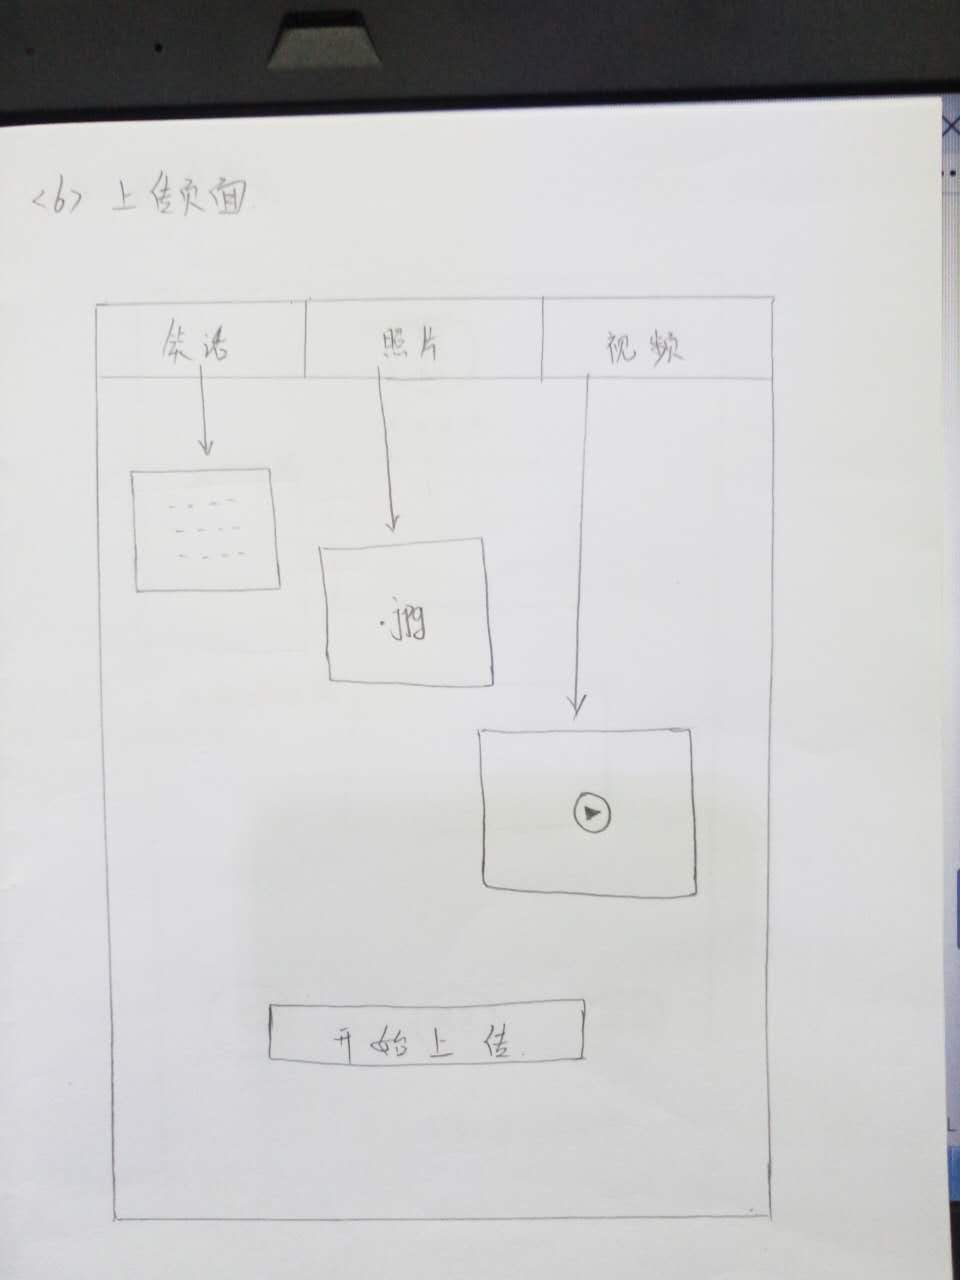 <6> 上传页面
笑话 照片 视频
.jpg
开始上传